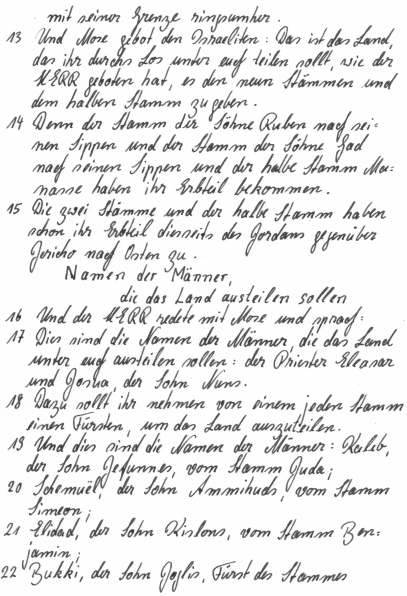 mit seiner Grenze ringsumher.
13 Und Mose gebot den Israeliten: Das ist das Land,
das ihr durchs Los unter euch teilen sollt, wie der
HERR geboten hat, es den neun Stämmen und
dem halben Stamm zu geben.
14 Denn der Stamm der Söhne Ruben nach sei=
nen Sippen und der Stamm der Söhne Gad
nach seinen Sippen und der halbe Stamm Ma=
nasse haben ihr Erbteil bekommen.
15 Die zwei Stämme und der halbe Stamm haben
schon ihr Erbteil diesseits des Jordans gegenüber
Jericho nach Osten zu.
Namen der Männer,
die das Land austeilen sollen
16 Und der HERR redete mit Mose und sprach:
17 Dies sind die Namen der Männer, die das Land
unter euch austeilen sollen: der Priester Eleasar
und Josua, der Sohn Nuns.
18 Dazu sollt ihr nehmen von einem jeden Stamm
einen Fürsten, um das Land auszuteilen.
19 Und dies sind die Namen der Männer: Kaleb,
der Sohn Jefunnes, vom Stamm Juda;
20 Schemuël, der Sohn Ammihuds, vom Stamm
Simeon;
21 Elidad, der Sohn Kislons, vom Stamm Ben=
jamin;
22 Bukki, der Sohn Joglis, Fürst des Stammes